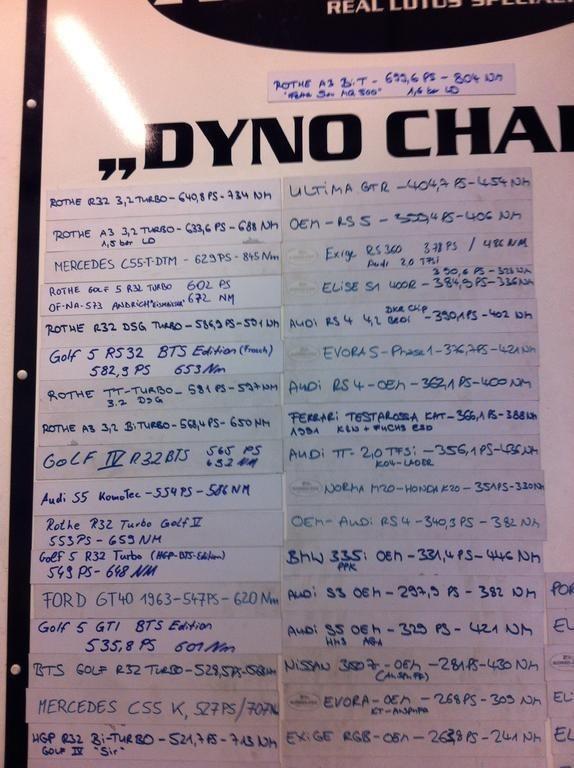 REAL LOTUS
ROTHE A3 BiT - 699,6 PS - 804 NM
1,6 bar LD
„DYNO CHA
ROTHE R32 3,2 TURBO - 640,8 PS - 734 NM
ROTHE A3 3,2 TURBO - 633,6 PS - 688 NM
1,5 bar LD
MERCEDES C55T-DTM - 629 PS - 845 Nm
ROTHE GOLF 5 R32 TURBO 602 PS
OF-NA-573 672 NM
ROTHE R32 DSG TURBO - 586,9 PS - 591 NM
Golf 5 RS32 BTS Edition (Frosch)
582,9 PS 653 Nm
ROTHE TT-TURBO - 581 PS - 597 NM
3.2 DSG
ROTHE A3 3,2 BiTURBO - 568,4 PS - 650 NM
GOLF IV R32 BTS 565 PS
652 NM
Audi S5 KOMOTEC - 554 PS - 586 NM
Rothe R32 Turbo Golf IV
553 PS - 659 NM
Golf 5 R32 Turbo (HGP-BTS-Edition)
549 PS - 648 NM
FORD GT40 1963 - 547 PS - 620 Nm
Golf 5 GTI BTS Edition
535,8 PS 601 Nm
BTS GOLF R32 TURBO - 528,5 PS - 568 NM
MERCEDES C55 K, 527 PS / 707 NM
HGP R32 Bi-TURBO - 521,7 PS - 713 NM
GOLF IV "Sir"
ULTIMA GTR - 404,7 PS - 454 NM
OEM - RS 5 - PS - 406 NM
Exige RS360 378 PS / 486 NM
Audi 2.0 TFSI
390,6 PS - 323 NM
ELISE S1 400R - 384,9 PS - 336 NM
AUDI RS 4 4,2 - 390,1 PS - 402 NM
EVORA S - Phase 1 - 376,7 PS - 421 NM
AUDI RS 4 - OEM - 362,1 PS - 400 NM
FERRARI TESTAROSSA KAT - 366,1 PS - 388 NM
1991 K&N + FUCHS ESD
AUDI TT - 2,0 TFSI - 356,1 PS - 436 NM
K04-LADER
NORMA M20 - HONDA K20 - 351 PS - 330 NM
OEM - AUDI RS4 - 340,3 PS - 382 NM
BMW 335i OEM - 331,4 PS - 446 NM
PPK
AUDI S3 OEM - 297,9 PS - 382 NM
AUDI S5 OEM - 329 PS - 421 NM
NISSAN 350Z - OEM - 281 PS - 430 NM
EVORA - OEM - 268 PS - 309 NM
EXIGE RGB - OEM - 263,8 PS - 241 NM
POR
EL
EL